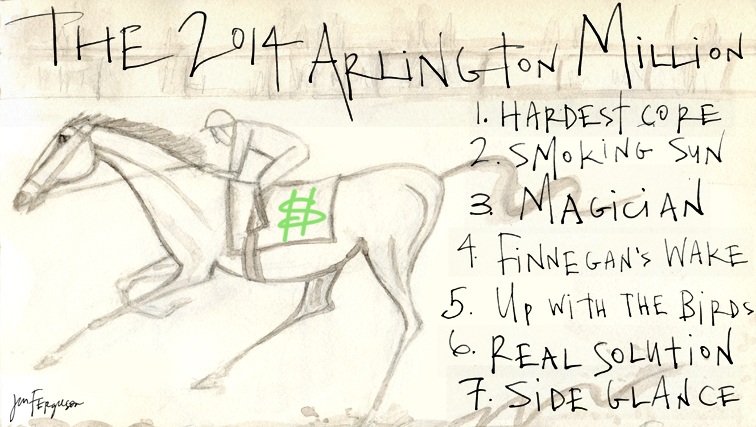 THE 2014 ARLINGTON MILLION
1. HARDEST CORE
2. SMOKING SUN
3. MAGICIAN
4. FINNEGAN'S WAKE
5. UP WITH THE BIRDS
6. REAL SOLUTION
7. SIDE GLANCE
$
Jen Ferguson